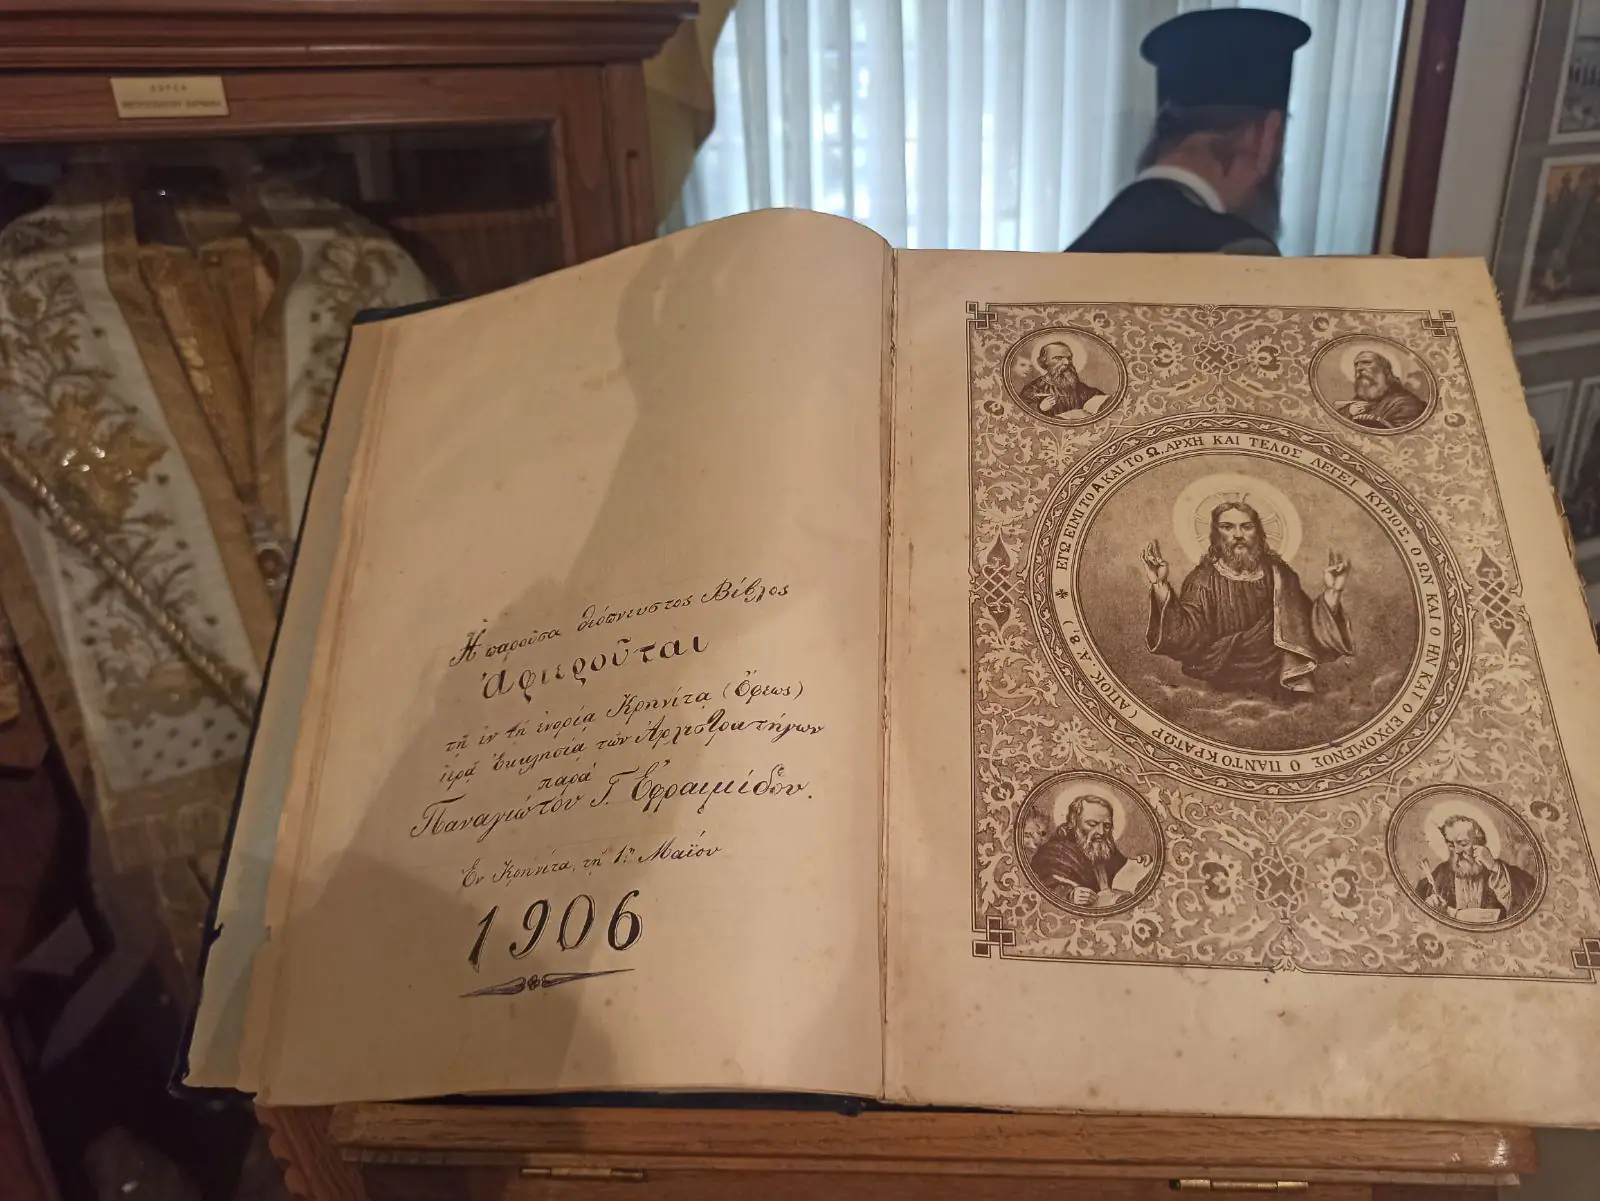 ΔΩΡΕΑ
Ἡ παροῦσα θεόπνευστος Βίβλος
Ἀφιεροῦται
τῇ ἐν τῇ ἐνορίᾳ Κρηνίτα (Ὄφεως)
ἱερᾷ Ἐκκλησίᾳ τῶν Ἀρχιστρατήγων
παρά
Παναγιώτου Γ. Ἐφραιμίδου.
Ἐν Κρηνίτᾳ, τῇ 1ῃ Μαΐου
1906
✠ ΕΓΩ ΕΙΜΙ ΤΟ Α ΚΑΙ ΤΟ Ω, ΑΡΧΗ ΚΑΙ ΤΕΛΟΣ ΛΕΓΕΙ ΚΥΡΙΟΣ, Ο ΩΝ ΚΑΙ Ο ΗΝ ΚΑΙ Ο ΕΡΧΟΜΕΝΟΣ Ο ΠΑΝΤΟΚΡΑΤΩΡ (ΑΠΟΚ. Α. 8.)